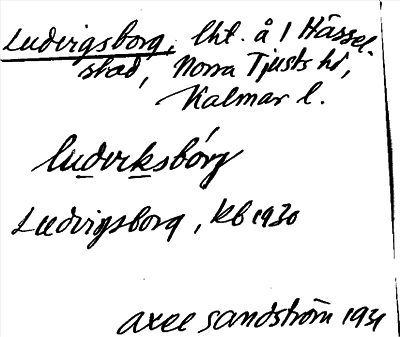 Ludvigsborg, lht. å 1 Hässel-
stad, Norra Tjusts hd,
Kalmar l.
ludviksbórg
Ludvigsborg, kb 1930
Axel Sandström 1931